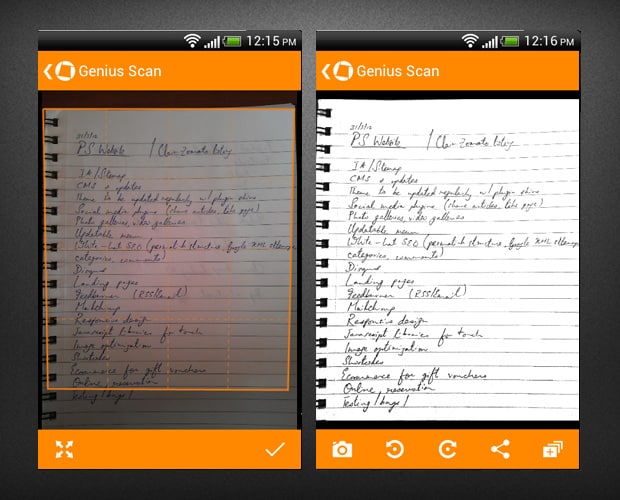 12:15 PM
Genius Scan
31/5/12
PS Website / Claim Zomato listing
IA/Sitemap
CMS + updates
Theme to be updated regularly w/ plugin
Social media plugins (share articles, like page)
Photo galleries, video galleries
Updatable menu
White-hat SEO (permalink structure, Google XML sitemap
categories, comments)
Disqus
Landing pages
Feedburner (RSS/Email)
Mailchimp
Responsive design
Javascript libraries for touch
Image optimization
Shortcodes
Ecommerce for gift vouchers
Online reservation
Testing / bugs /
12:16 PM
Genius Scan
31/5/12
PS Website / Claim Zomato listing
IA/Sitemap
CMS + updates
Theme to be updated regularly w/ plugin
Social media plugins (share articles, like page)
Photo galleries, video galleries
Updatable menu
White-hat SEO (permalink structure, Google XML sitemap
categories, comments)
Disqus
Landing pages
Feedburner (RSS/Email)
Mailchimp
Responsive design
Javascript libraries for touch
Image optimization
Shortcodes
Ecommerce for gift vouchers
Online reservation
Testing / bugs /